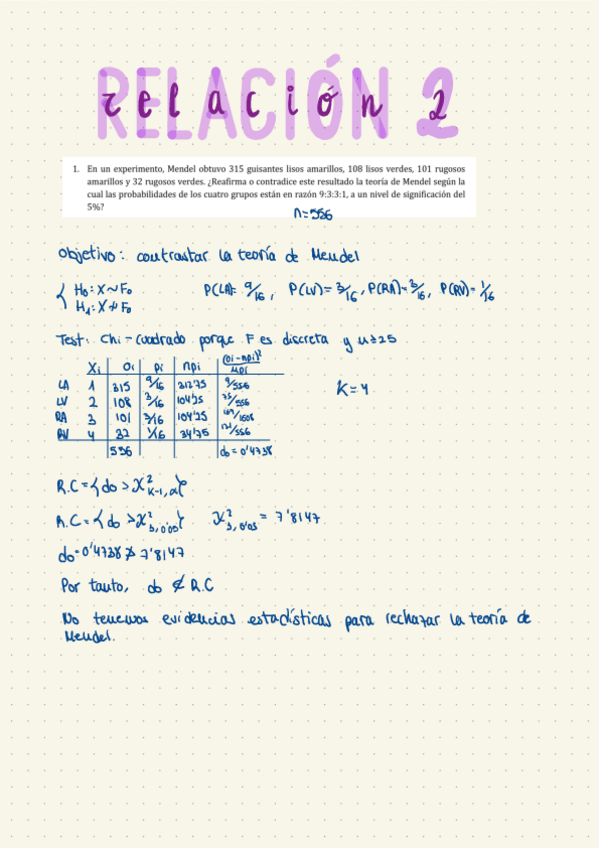 RELACIÓN 2
relación 2
1. En un experimento, Mendel obtuvo 315 guisantes lisos amarillos, 108 lisos verdes, 101 rugosos
amarillos y 32 rugosos verdes. ¿Reafirma o contradice este resultado la teoría de Mendel según la
cual las probabilidades de los cuatro grupos están en razón 9:3:3:1, a un nivel de significación del
5%?
n=556
Objetivo: contrastar la teoría de Mendel
H₀: X ~ F₀ P(LA)= 9/16, P(LV)= 3/16, P(RA)= 3/16, P(RV)= 1/16
H₁: X ≁ F₀
Test: Chi-cuadrado porque F es discreta y n≥25
Xi Oi pi npi (oi-npi)²/npi
LA 1 315 9/16 312'75 9/556 K=4
LV 2 108 3/16 104'25 75/556
RA 3 101 3/16 104'25 169/1668
RV 4 32 1/16 34'75 121/556
556 do=0'4738
R.C={do > X²k-1,α}
R.C={do > X²3,0'05} X²3,0'05 = 7'8147
do=0'4738 ≯ 7'8147
Por tanto, do ∉ R.C
No tenemos evidencias estadísticas para rechazar la teoría de
Mendel.